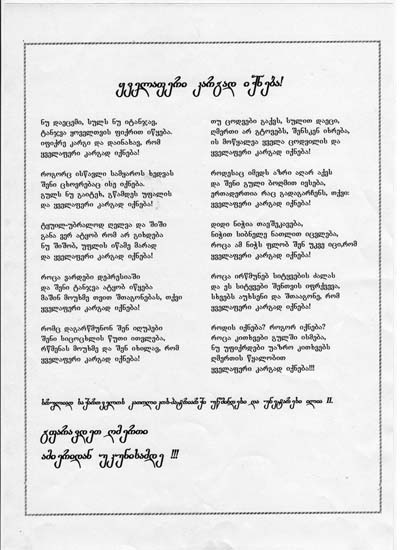 ყველაფერი კარგად იქნება!
ნუ დაეცემი, სულს ნუ იტანჯავ,
ტანჯვა ყოველთვის ფიქრით იწყება.
იფიქრე კარგი და დაინახავ, რომ
ყველაფერი კარგად იქნება!
როგორც ისწავლი სამყაროს ხედვას
შენი ცხოვრებაც ისე იქნება.
გულს ნუ გაიტეხ, გწამდეს უფალის
და ყველაფერი კარგად იქნება!
ტყუილ-უბრალოდ ღელვა და შიში
განა ვერ ატყობ რომ არ გიხდება
ნუ შიშობ, უფლის იწამე მარად
და ყველაფერი კარგად იქნება!
როცა ვარდები დეპრესიაში
და შენი ტანჯვა ატყობ იწყება
მაშინ მოუხმე თვით შთაგონებას, თქვი
ყველაფერი კარგად იქნება!
რომც დაგარწმუნონ შენ იღუპები
შენი სიცოცხლის წუთი ითვლება,
რწმენას მოუხმე და შენ იხილავ, რომ
ყველაფერი კარგად იქნება!
თუ ცოდვები გაქვს, სულით დაეცი,
ღმერთი არ გტოვებს, შენსკენ იხრება,
ის მოწყალეა ყველა ცოდვილის და
ყველაფერი კარგად იქნება!
როდესაც იმედს აზრი აღარ აქვს
და შენი გული ბოღმით ივსება,
ერთადერთია რაც გადაგარჩენს, თქვი:
ყველაფერი კარგად იქნება!
დიდი ნიჭია თავშეკავება,
ნიჭით სიბნელე ნათლით იცვლება,
როცა ამ ნიჭს ფლობ შენ უკვე იცი,რომ
ყველაფერი კარგად იქნება!
როცა ირწმუნებ სიტყვების ძალას
და ეს სიტყვები შენთვის იფრქვევა,
სხვებს აუხსენი და შთააგონე, რომ
ყველაფერი კარგად იქნება!
როდის იქნება? როგორ იქნება?
როცა კითხვები გულში ისმება,
ნუ უფიქრდები უაზრო კითხვებს
ღმერთის წყალობით
ყველაფერი კარგად იქნება!!!
სრულიად საქართველოს კათოლიკოს-პატრიარქი უწმინდესი და უნეტარესი ილია II.
გფარავდეთ ღმერთი
ამიერიდან უკუნისამდე !!!